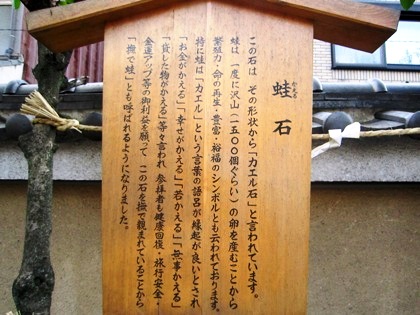 蛙石
この石は その形状から「カエル石」と言われています。
蛙は 一度に沢山(一五〇〇個ぐらい)の卵を産むことから
繁殖力・命の再生・豊富・裕福のシンボルとも云われております。
特に蛙は「カエル」という言葉の語呂が縁起が良いとされ
「お金がかえる」「幸せがかえる」「若かえる」「無事かえる」
「貸した物がかえる」等々言われ 参拝者も健康回復・旅行安全・
金運アップ等の御利益を願って この石を撫で親まれていることから
「撫で蛙」とも呼ばれるようになりました。